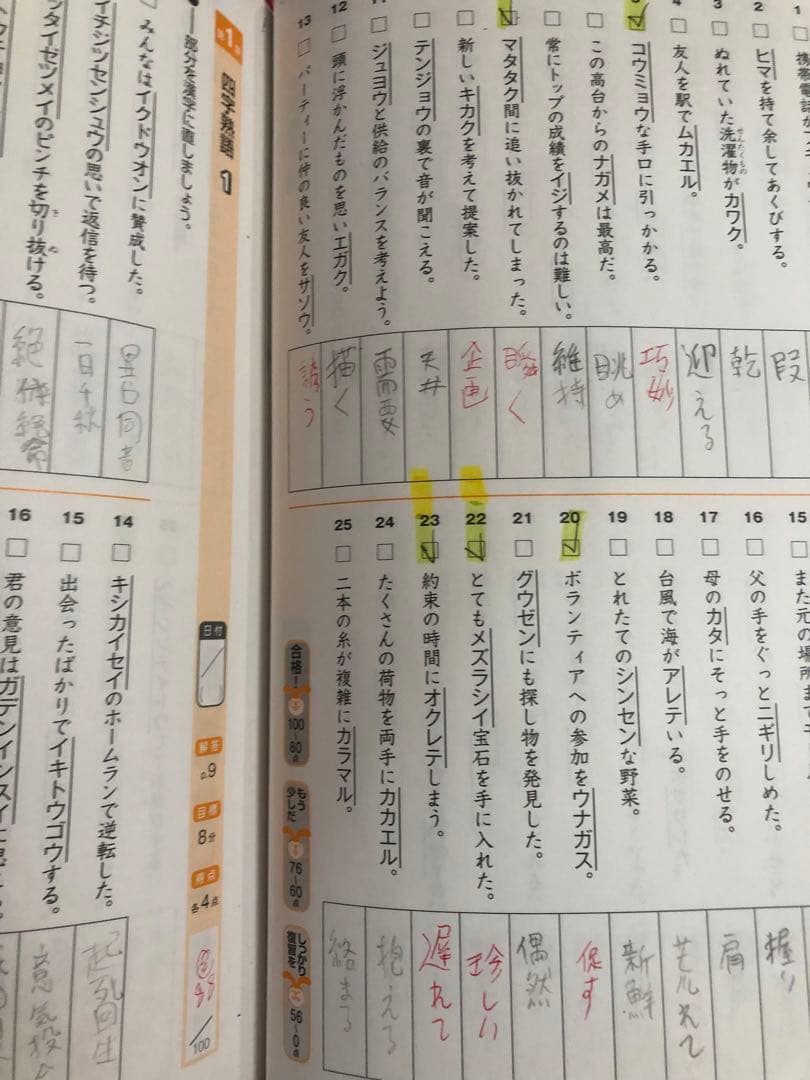 1
携帯電話が
2
ヒマを持て余してあくびする。
3
ぬれていた洗濯物がカワク。
せんたくもの
4
友人を駅でムカエル。
コウミョウな手口に引っかかる。
この高台からのナガメは最高だ。
常にトップの成績をイジするのは難しい。
マタタク間に追い抜かれてしまった。
新しいキカクを考えて提案した。
テンジョウの裏で音が聞こえる。
ジュヨウと供給のバランスを考えよう。
12
頭に浮かんだものを思いエガク。
13
パーティーに仲の良い友人をサソウ。
暇
乾
迎える
巧妙
眺め
維持
瞬く
企画
天井
需要
描く
誘う
15
また元の場所
16
父の手をぐっとニギリしめた。
17
母のカタにそっと手をのせる。
18
台風で海がアレテいる。
19
とれたてのシンセンな野菜。
20
ボランティアへの参加をウナガス。
21
グウゼンにも探し物を発見した。
22
とてもメズラシイ宝石を手に入れた。
23
約束の時間にオクレテしまう。
24
たくさんの荷物を両手にカカエル。
25
二本の糸が複雑にカラマル。
握り
肩
荒れて
新鮮
促す
偶然
珍しい
遅れて
抱える
絡まる
合格!
100~80点
もう少しだ
76~60点
しっかり復習を
56~0点
第1
四字熟語 1
日付
解答
p.9
目標
8分
得点
各4点
/100
部分を漢字に直しましょう。
みんなはイクドウオンに賛成した。
イチジツセンシュウの思いで返信を待つ。
タイゼツメイのピンチを切り抜ける。
き ぬ
異口同音
一日千秋
絶体絶命
14
キシカイセイのホームランで逆転した。
15
出会ったばかりでイキトウゴウする。
16
君の意見はガデンインスイに
起死回生
意気投